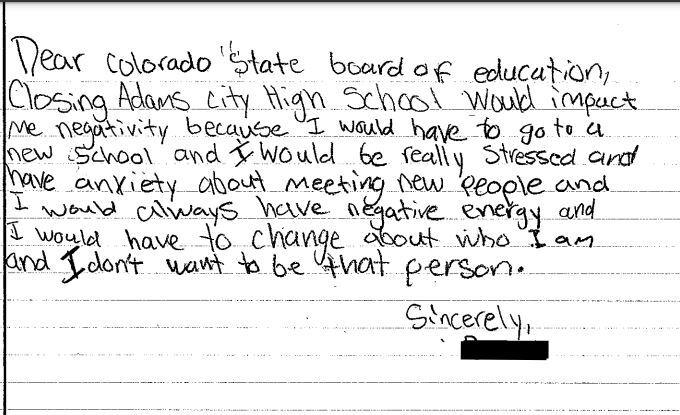 Dear Colorado State board of education,
Closing Adams city High School would impact
me negativity because I would have to go to a
new school and I would be really stressed and
have anxiety about meeting new people and
I would always have negative energy and
I would have to change about who I am
and I don't want to be that person.
Sincerely,